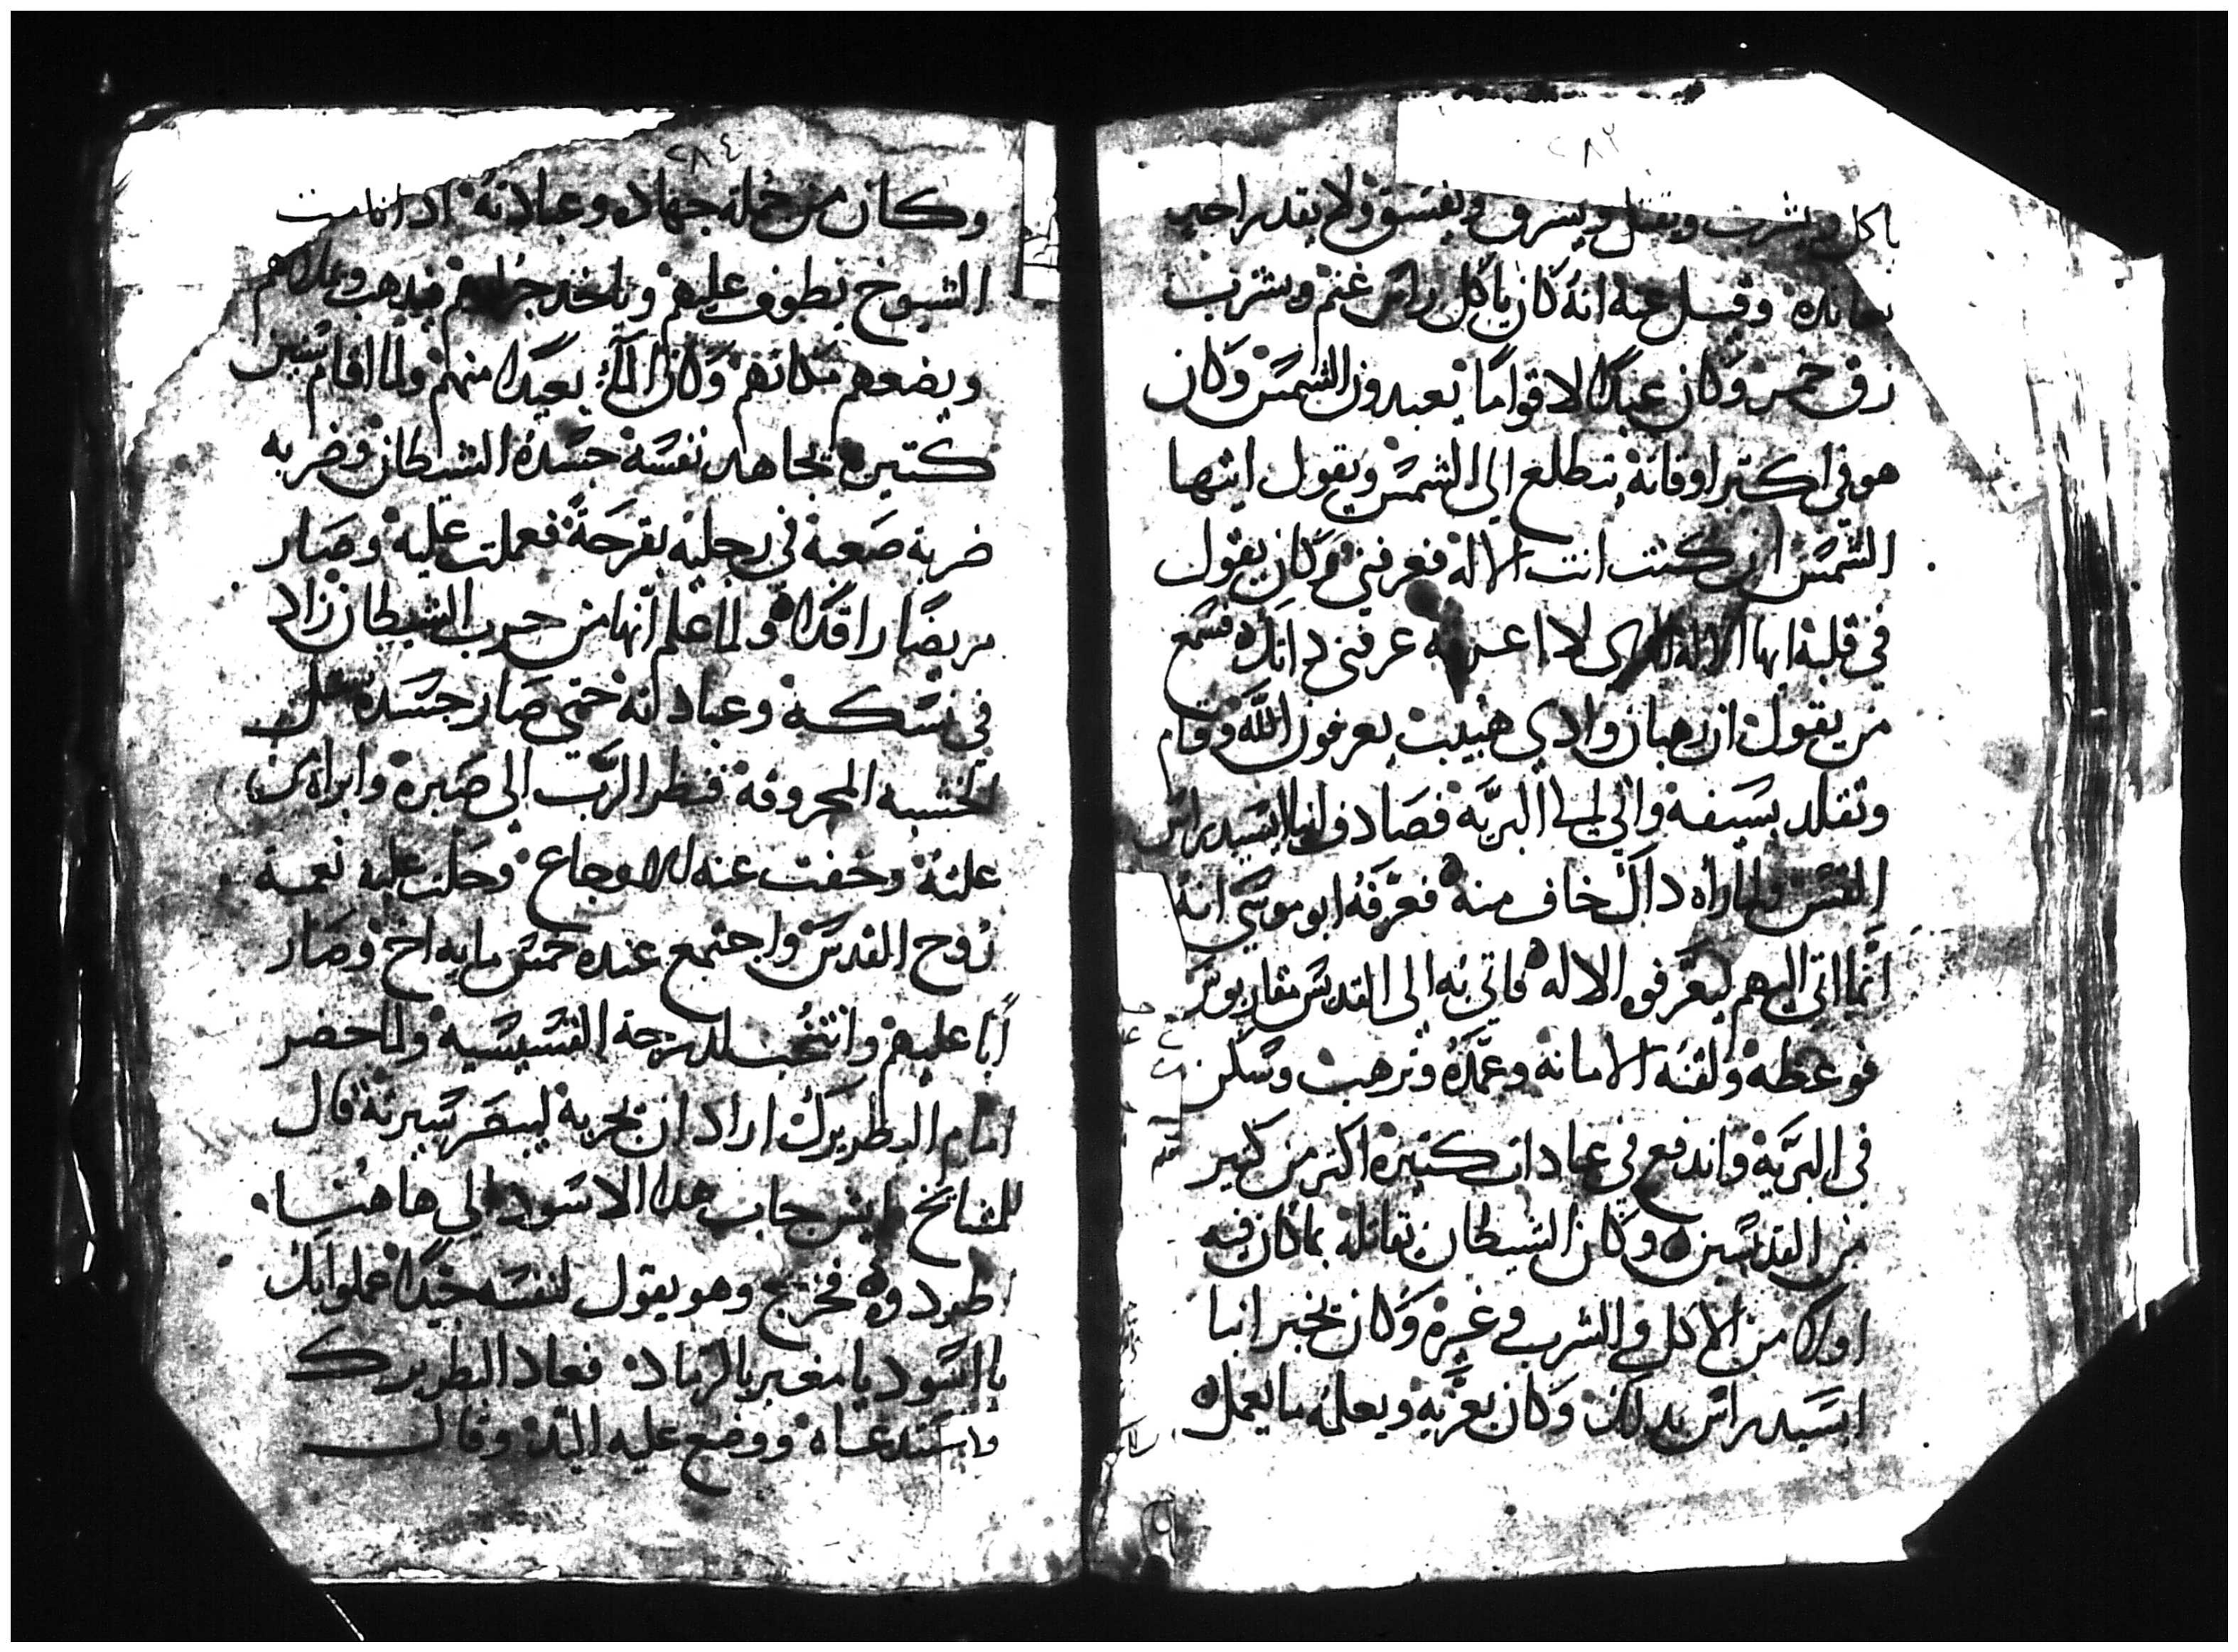 ٢٨٣
ياكل ويشرب ويقتل ويسرق ويفسق ولا يقدر احد
يعانده وقيل عنه انه كان ياكل راس غنم ويشرب
زق خمر وكان عبدًا لاقوامًا يعبدون الشمس وكان
هو في اكتر اوقاته يتطلع الى الشمس ويقول ايتها
الشمس ان كنت انت الاله فعرفيني وكان يقول
في قلبه ايها الاله الدى لا اعرفه عرفني داتك فسمع
من يقول ان رهبان وادى هبيب يعرفون الله وقام
وتقلد بسيفه واتي الى البريه فصادف انبا ايسيدراس
القس ولما راه داك خاف منه فعرّفه ابو موسى انه
انما اتى اليهم ليعرفوه الاله فاتي به الى القديس مقاريوس
فوعظه ولقنه الامانة وعمّده وترهب وسكن
في البريّة واندفع في عبادات كتيرة اكتر من كتير
من القديسين وكان الشيطان يقاتله بما كان فيه
اولا من الاكل والشرب وغيره وكان يخبر انبا
ايسيدراس بدلك وكان يعزيه ويعلمه ما يعمله
٢٨٤
وكان من جملة جهاده وعبادته ادا نامت
الشيوخ يطوف عليهم وياخد جرارهم فيدهب وعلاهم
ويضعهم مكانهم وكان الماء بعيدا منهم ولما اقام سنين
كتيره يجاهد نفسه حسده الشيطان وضربه
ضربة صعبة في رجليه بقرحة فعملت عليه وصار
مريضًا راقدًا ولما علم انها من حرب الشيطان زاد
في نسكه وعباداته حتى صار جسده مثل
الخشبه المحروقة فنظر الرب الى صبره وابراه من
علته وخفت عنه الاوجاع وحلت عليه نعمة
روح القدس واجتمع عنده خمس مايه اخ وصار
أبًا عليهم وانتخب لدرجة القسيسيه ولما حضر
امام البطريرك اراد ان يجربه لينظر سيرته قال
للمشايخ اين جاب هدا الاسود الى هاهنا
اطردوه فخرج وهو يقول لنفسه جيدًا عملوا بك
يا اسود يا مغبر بالرماد فعاد البطريرك
واستدعاه ووضع عليه اليد وقال